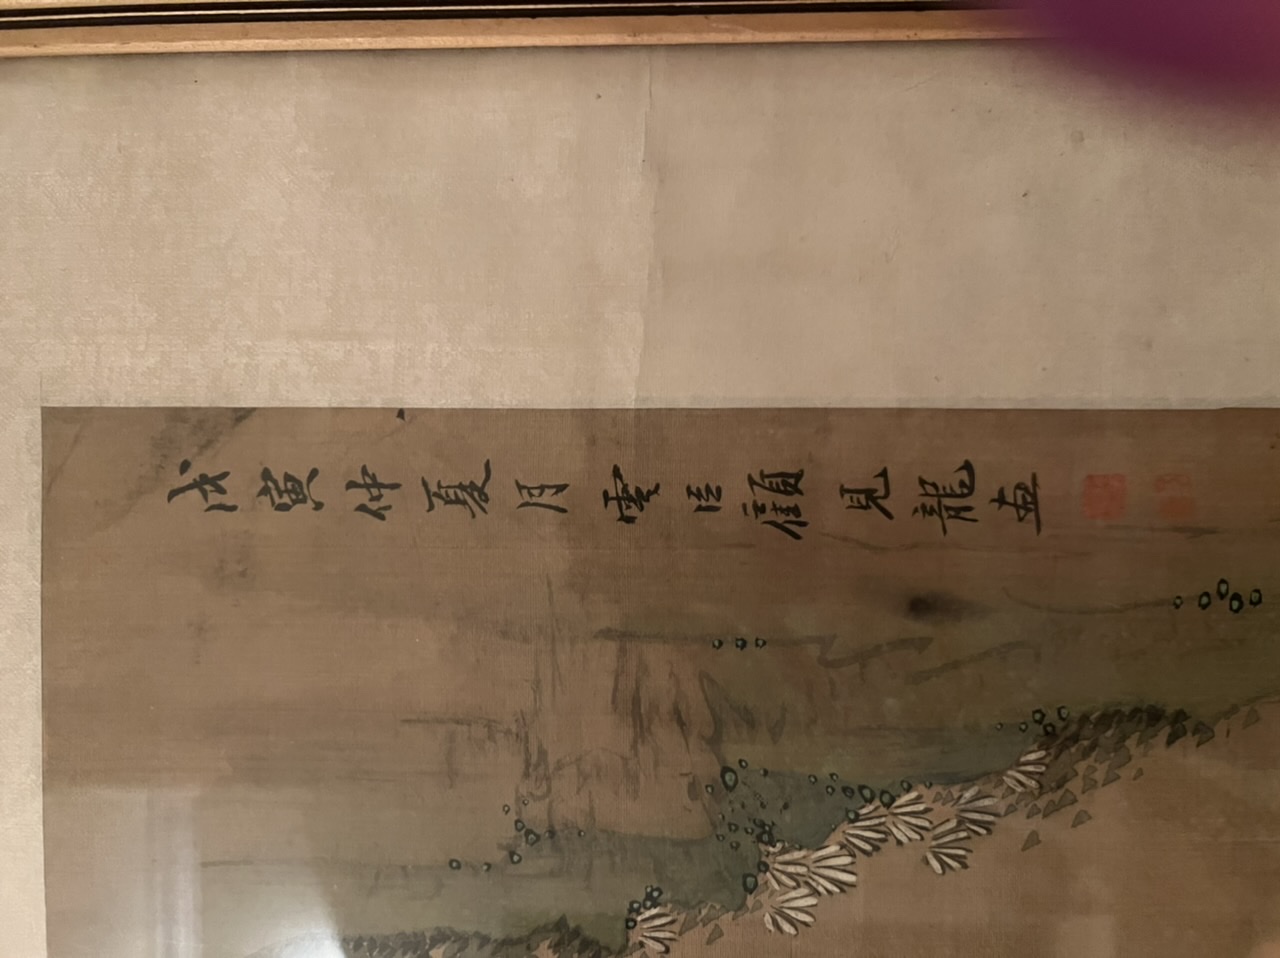 戊寅仲夏月雲臣顧見龍畫